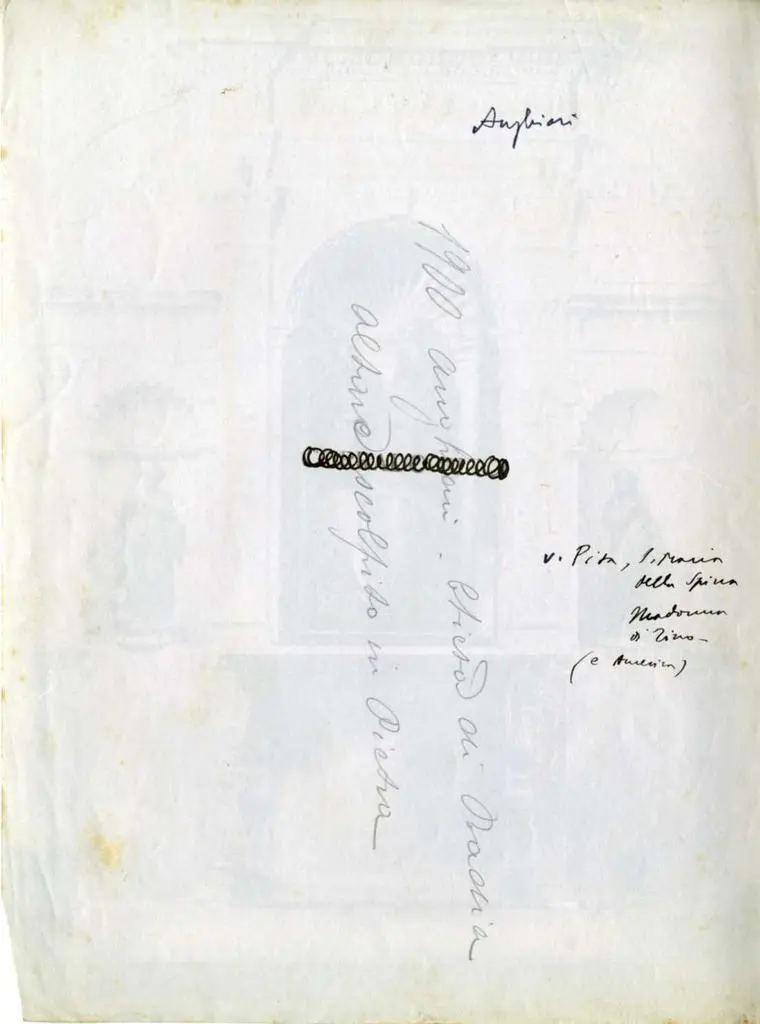 Anghiari
1900 Anghiari - Chiesa di Badia
altare scolpito in Pietra
v. Pisa, S. Maria
della Spina
Madonna
di Tino -
(e America)